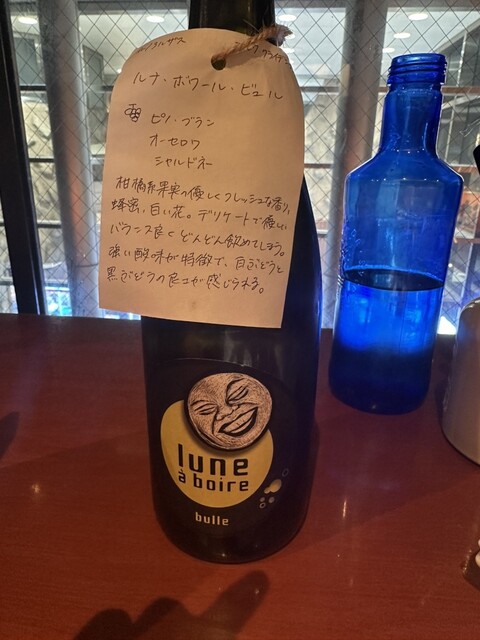 ルナ・ボワール・ビュル
ピノ・ブラン
オーセロワ
シャルドネー
柑橘系果実の優しくフレッシュな香り、
蜂蜜、白い花。デリケートで優しい
バランス良くどんどん飲めてしまう。
強い酸味が特徴で、白ぶどうと
黒ぶどうの良さが感じられる。
lune
à boire
bulle